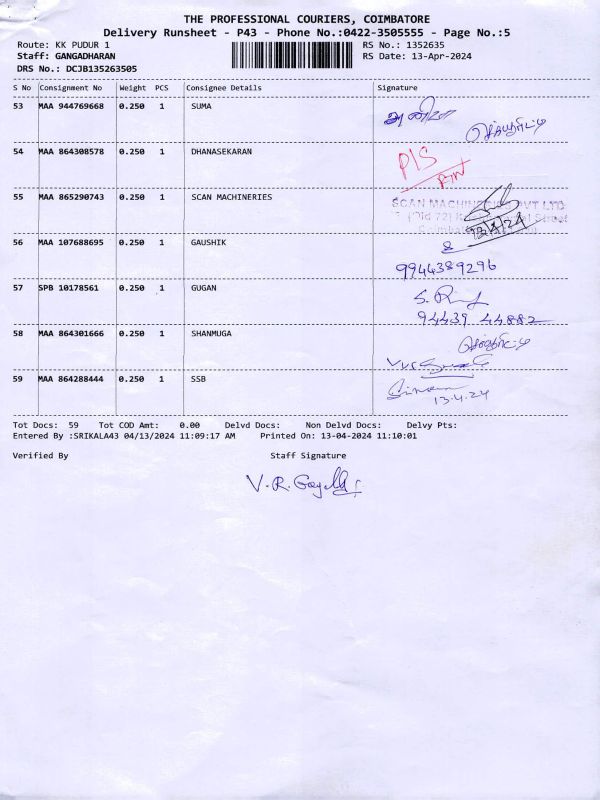 THE PROFESSIONAL COURIERS, COIMBATORE
Delivery Runsheet - P43 - Phone No.:0422-3505555 - Page No.:5
Route: KK PUDUR 1
RS No.: 1352635
Staff: GANGADHARAN
RS Date: 13-Apr-2024
DRS No.: DCJB135263505
S No Consignment No Weight PCS Consignee Details Signature
53 MAA 944769668 0.250 1 SUMA
54 MAA 864308578 0.250 1 DHANASEKARAN
P/S
55 MAA 865290743 0.250 1 SCAN MACHINERIES
SCAN MACHINERIES PVT LTD
(Old 72) Street
13/4/24
56 MAA 107688695 0.250 1 GAUSHIK
9944389296
57 SPB 10178561 0.250 1 GUGAN
94439 44882
58 MAA 864301666 0.250 1 SHANMUGA
59 MAA 864288444 0.250 1 SSB
13.4.24
Tot Docs: 59 Tot COD Amt: 0.00 Delvd Docs: Non Delvd Docs: Delvy Pts:
Entered By :SRIKALA43 04/13/2024 11:09:17 AM Printed On: 13-04-2024 11:10:01
Verified By Staff Signature